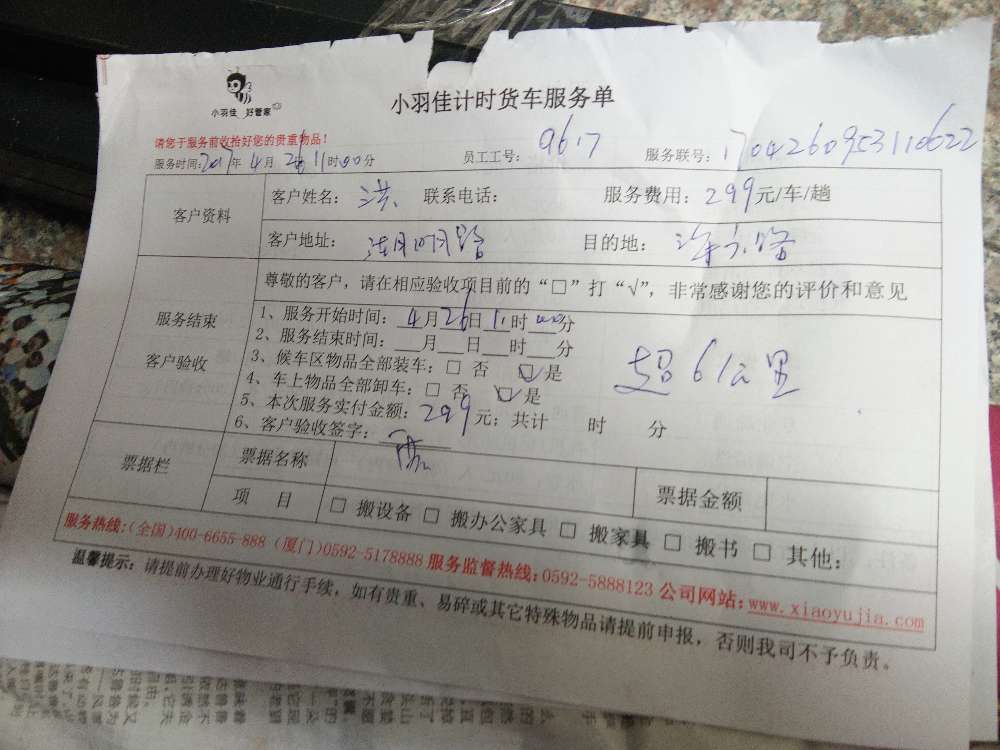 小羽佳 好管家
小羽佳计时货车服务单
请您于服务前收拾好您的贵重物品！
服务时间：2017年4月26日11时00分 员工工号：9617 服务联号：1704260953110622
客户资料
客户姓名：洪 联系电话： 服务费用：299元/车/趟
客户地址：湖明路 目的地：
服务结束
客户验收
尊敬的客户，请在相应验收项目前的“□”打“√”，非常感谢您的评价和意见
1、服务开始时间：4月26日11时00分
2、服务结束时间：___月___日___时___分
3、候车区物品全部装车：□ 否 ☑是
4、车上物品全部卸车：□ 否 ☑是
5、本次服务实付金额：299元；共计 时 分
6、客户验收签字：
超6公里
票据栏
票据名称 票据金额
项 目 □ 搬设备 □ 搬办公家具 □ 搬家具 □ 搬书 □ 其他：
服务热线：(全国)400-6655-888 (厦门)0592-5178888 服务监督热线：0592-5888123 公司网站：www.xiaoyujia.com
温馨提示：请提前办理好物业通行手续，如有贵重、易碎或其它特殊物品请提前申报，否则我司不予负责。